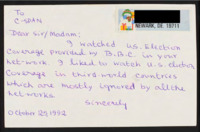 To
C-SPAN
NEWARK, DE. 19711
Dear Sir/Madam:
I watched U.S. Election
Coverage provided by B.B.C. in your
net-work. I liked to watch U.S. election
Coverage in third world countries
which are mostly ignored by all the
net-works
Sincerely
October 29, 1992